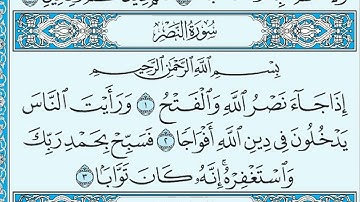 سُورَةُ النَّصْرِ
بِسْمِ اللَّهِ الرَّحْمَٰنِ الرَّحِيمِ
إِذَا جَاءَ نَصْرُ اللَّهِ وَالْفَتْحُ ١ وَرَأَيْتَ النَّاسَ
يَدْخُلُونَ فِي دِينِ اللَّهِ أَفْوَاجًا ٢ فَسَبِّحْ بِحَمْدِ رَبِّكَ
وَاسْتَغْفِرْهُ ۚ إِنَّهُ كَانَ تَوَّابًا ٣